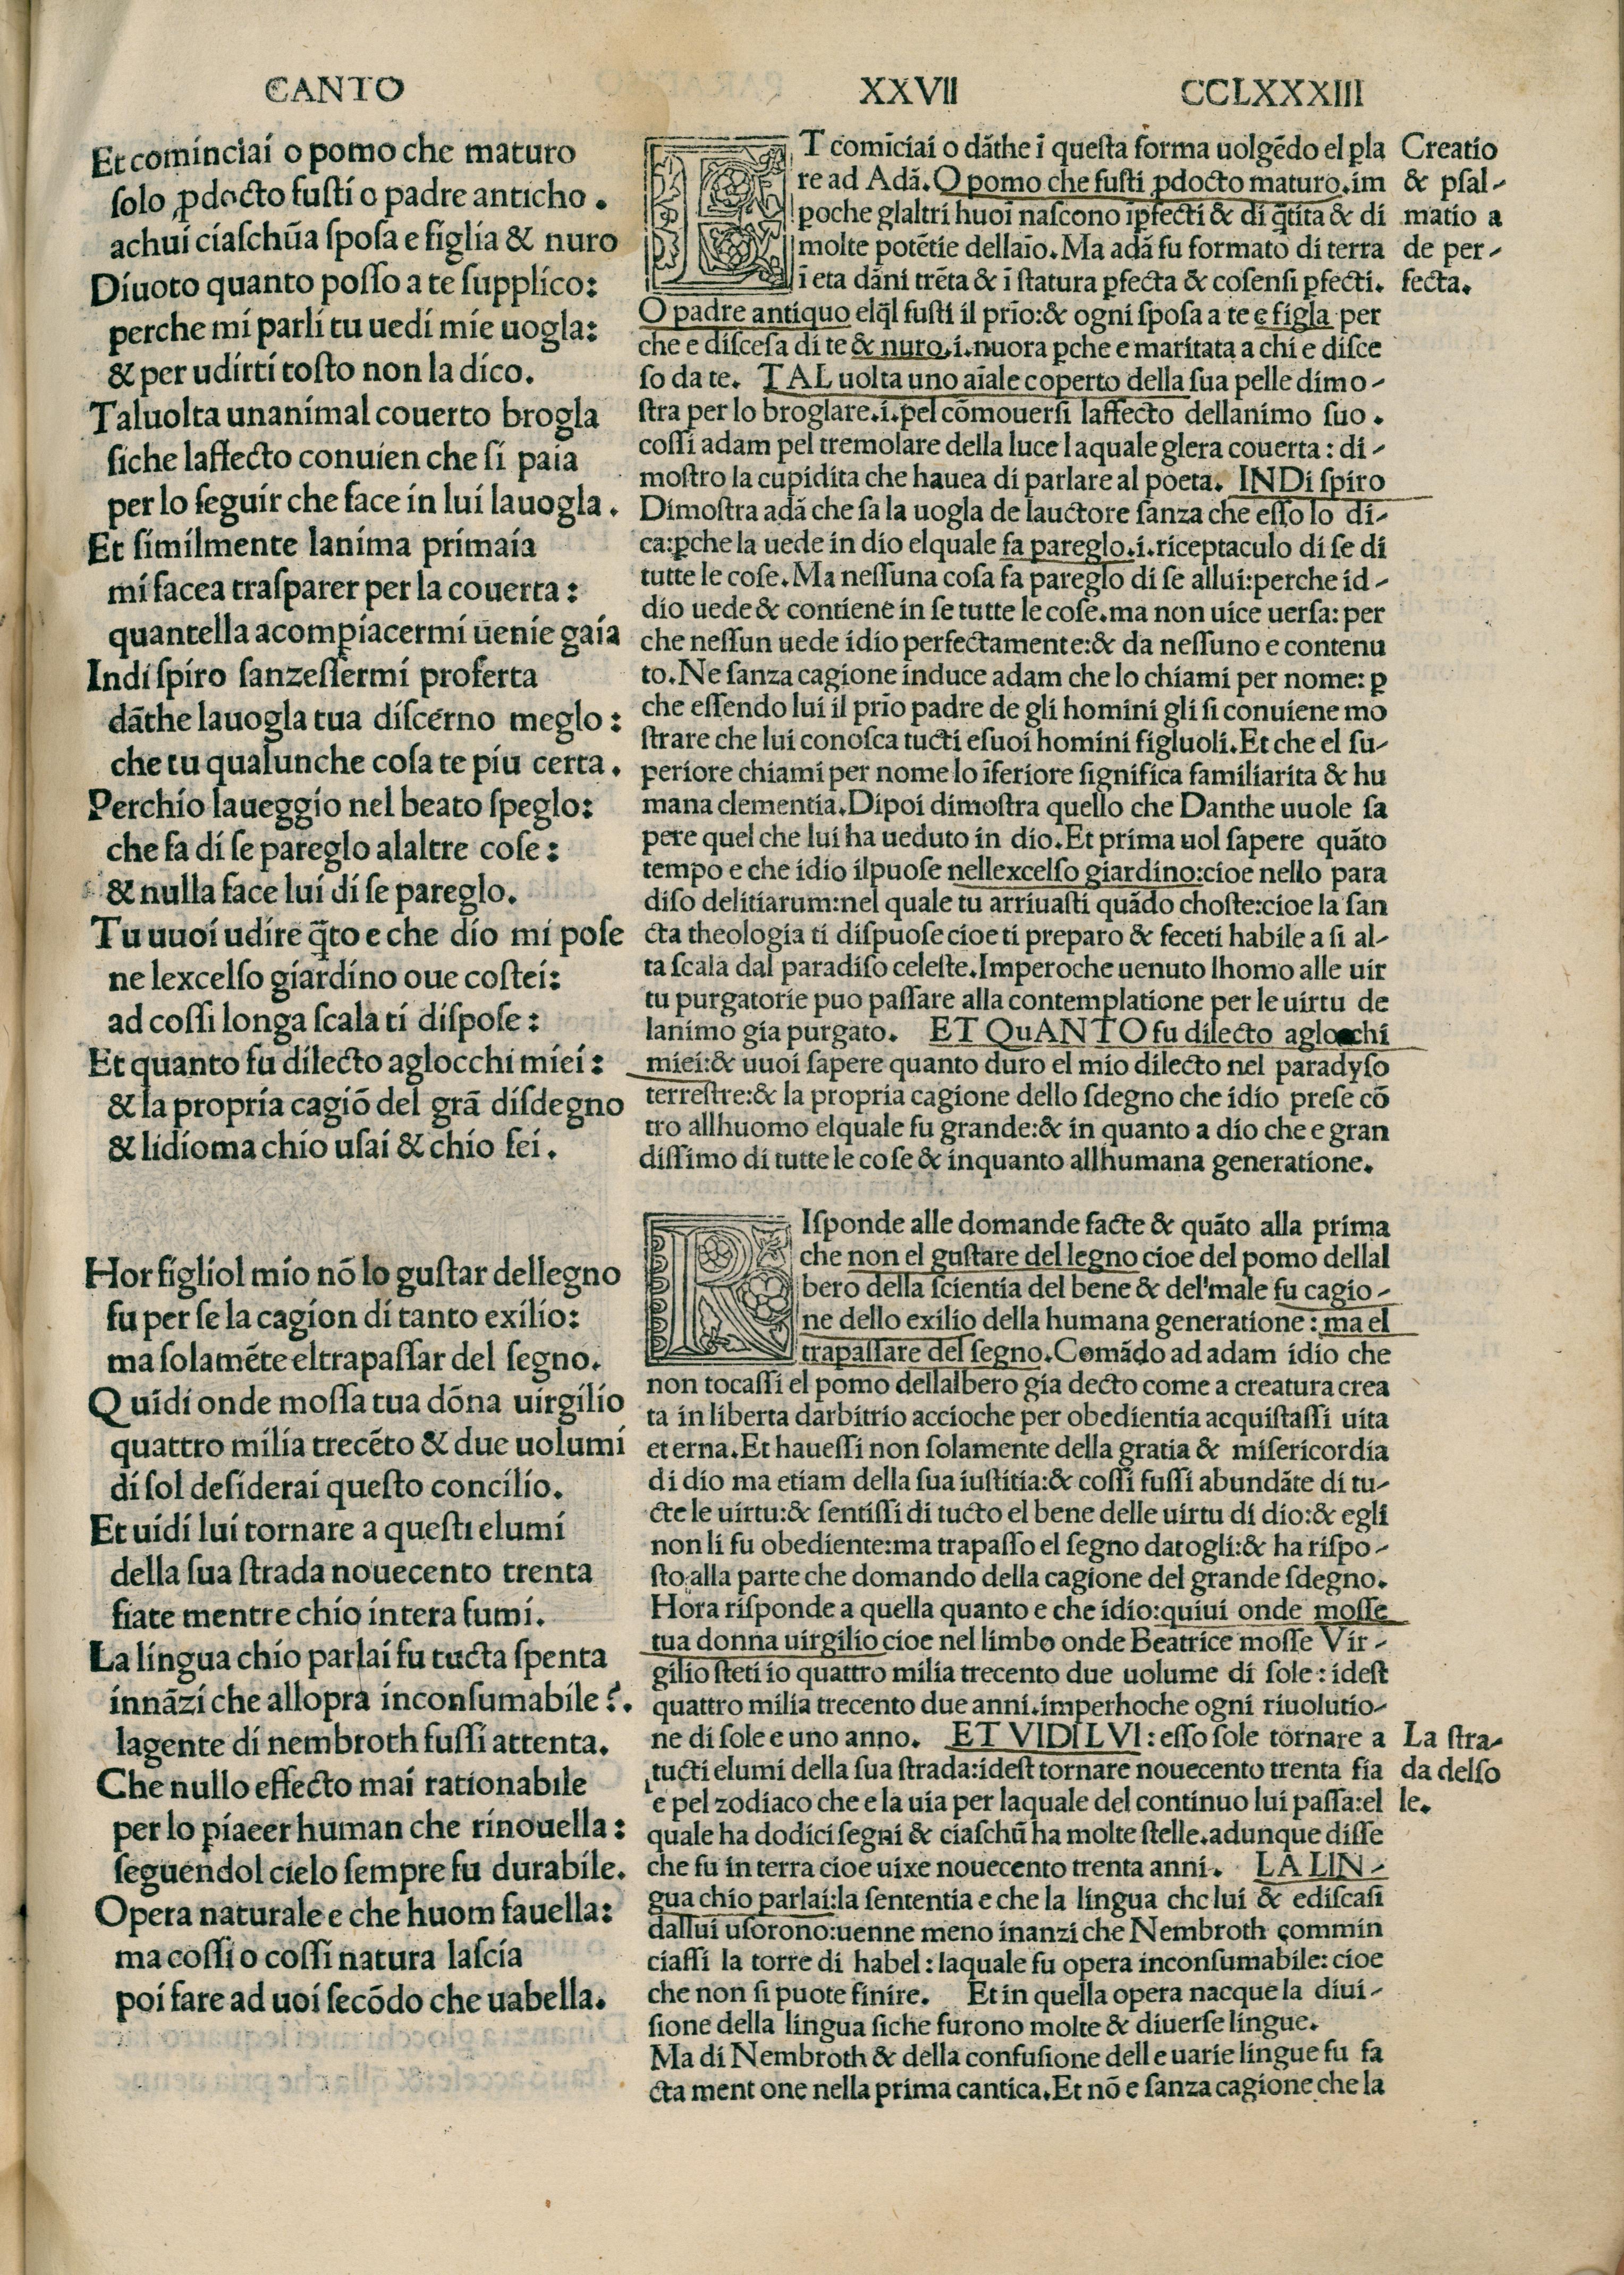 CANTO XXVII CCLXXXIII
Et cominciai o pomo che maturo
solo ꝓdocto fusti o padre anticho.
achui ciaschũa sposa e figlia & nuro
Diuoto quanto posso a te supplico:
perche mi parli tu uedi mie uogla:
& per udirti tosto non la dico.
Taluolta unanimal couerto brogla
siche laffecto conuien che si paia
per lo seguir che face in lui lauogla.
Et similmente lanima primaia
mi facea trasparer per la couerta:
quantella a compiacermi uenie gaia
Indi spiro sanzessermi proferta
dãthe lauogla tua discerno meglo:
che tu qualunche cosa te piu certa.
Perchio laueggio nel beato speglo:
che fa di se pareglo alaltre cose:
& nulla face lui di se pareglo.
Tu uuoi udire q̃to e che dio mi pose
ne lexcelso giardino oue costei:
ad cossi longa scala ti dispose:
Et quanto fu dilecto aglocchi miei:
& la propria cagiõ del grã disdegno
& lidioma chio usai & chio fei.
Hor figliol mio nõ lo gustar dellegno
fu per se la cagion di tanto exilio:
ma solamẽte eltrapassar del segno.
Quidi onde mossa tua dõna uirgilio
quattro milia trecẽto & due uolumi
di sol desiderai questo concilio.
Et uidi lui tornare a questi elumi
della sua strada nouecento trenta
fiate mentre chio intera fumi.
La lingua chio parlai fu tucta spenta
innãzi che allopra inconsumabile?.
lagente di nembroth fussi attenta.
Che nullo effecto mai rationabile
per lo piaeer human che rinouella:
seguendol cielo sempre fu durabile.
Opera naturale e che huom fauella:
ma cossi o cossi natura lascia
poi fare ad uoi secõdo che uabella.
ET comĩciai o dãthe ĩ questa forma uolgẽdo el ꝑla
re ad Adã. O pomo che fusti ꝓdocto maturo. im
poche glaltri huoĩ nascono ĩꝑfecti & di q̃tita & di
molte potẽtie dellaĩo. Ma adã fu formato di terra
ĩ eta dãni trẽta & ĩ statura ꝑfecta & cosensi ꝑfecti.
O padre antiquo elq̃l fusti il prĩo:& ogni sposa a te e figla per
che e discesa di te & nuro.i.nuora ꝑche e maritata a chi e disce
so da te. TAL uolta uno aĩale coperto della sua pelle dimo-
stra per lo broglare.i.pel cõmouersi laffecto dellanimo suo.
cossi adam pel tremolare della luce laquale glera couerta: di-
mostro la cupidita che hauea di parlare al poeta. INDi spiro
Dimostra adã che sa la uogla de lauctore sanza che esso lo di-
ca:ꝑche la uede in dio elquale fa pareglo.i.riceptaculo di se di
tutte le cose. Ma nessuna cosa fa pareglo di se allui:perche id-
dio uede & contiene in se tutte le cose.ma non uice uersa: per
che nessun uede idio perfectamente:& da nessuno e contenu
to. Ne sanza cagione induce adam che lo chiami per nome: ꝑ
che essendo lui il prĩo padre de gli homini gli si conuiene mo
strare che lui conosca tucti esuoi homini figluoli. Et che el su-
periore chiami per nome lo ĩferiore significa familiarita & hu
mana clementia. Dipoi dimostra quello che Danthe uuole sa
pere quel che lui ha ueduto in dio. Et prima uol sapere quãto
tempo e che idio ilpuose nellexcelso giardino:cioe nello para
diso delitiarum:nel quale tu arriuasti quãdo choste:cioe la san
cta theologia ti dispuose cioe ti preparo & feceti habile a si al-
ta scala dal paradiso celeste. Imperoche uenuto lhomo alle uir
tu purgatorie puo passare alla contemplatione per le uirtu de
lanimo gia purgato. ET QuANTO fu dilecto aglocchi
miei:& uuoi sapere quanto duro el mio dilecto nel paradyso
terrestre:& la propria cagione dello sdegno che idio prese cõ
tro allhuomo elquale fu grande:& in quanto a dio che e gran
dissimo di tutte le cose & inquanto allhumana generatione.
RIsponde alle domande facte & quãto alla prima
che non el gustare del legno cioe del pomo dellal
bero della scientia del bene & del male fu cagio-
ne dello exilio della humana generatione: ma el
trapassare del segno. Comãdo ad adam idio che
non tocassi el pomo dellalbero gia decto come a creatura crea
ta in liberta darbitrio accioche per obedientia acquistassi uita
eterna. Et hauessi non solamente della gratia & misericordia
di dio ma etiam della sua iustitia:& cossi fussi abundãte di tu-
cte le uirtu:& sentissi di tucto el bene delle uirtu di dio:& egli
non li fu obediente:ma trapasso el segno datogli:& ha rispo-
sto alla parte che domando della cagione del grande sdegno.
Hora risponde a quella quanto e che idio:quiui onde mosse
tua donna uirgilio cioe nel limbo onde Beatrice mosse Vir-
gilio steti io quattro milia trecento due uolume di sole: idest
quattro milia trecento due anni.imperhoche ogni riuolutio-
ne di sole e uno anno. ET VIDI LVI: esso sole tornare a
tucti elumi della sua strada:idest tornare nouecento trenta fia
e pel zodiaco che e la uia per laquale del continuo lui passa:el
quale ha dodici segni & ciaschũ ha molte stelle.adunque disse
che fu in terra cioe uixe nouecento trenta anni. LA LIN-
gua chio parlai:la sententia e che la lingua che lui & ediscasi
dallui usorono:uenne meno inanzi che Nembroth commin
ciassi la torre di habel: laquale fu opera inconsumabile: cioe
che non si puote finire. Et in quella opera nacque la diui-
sione della lingua siche furono molte & diuerse lingue.
Ma di Nembroth & della confusione delle uarie lingue fu fa
cta ment one nella prima cantica. Et nõ e sanza cagione che la
Creatio
& psal-
matio a
de per-
fecta.
La stra-
da delso
le.